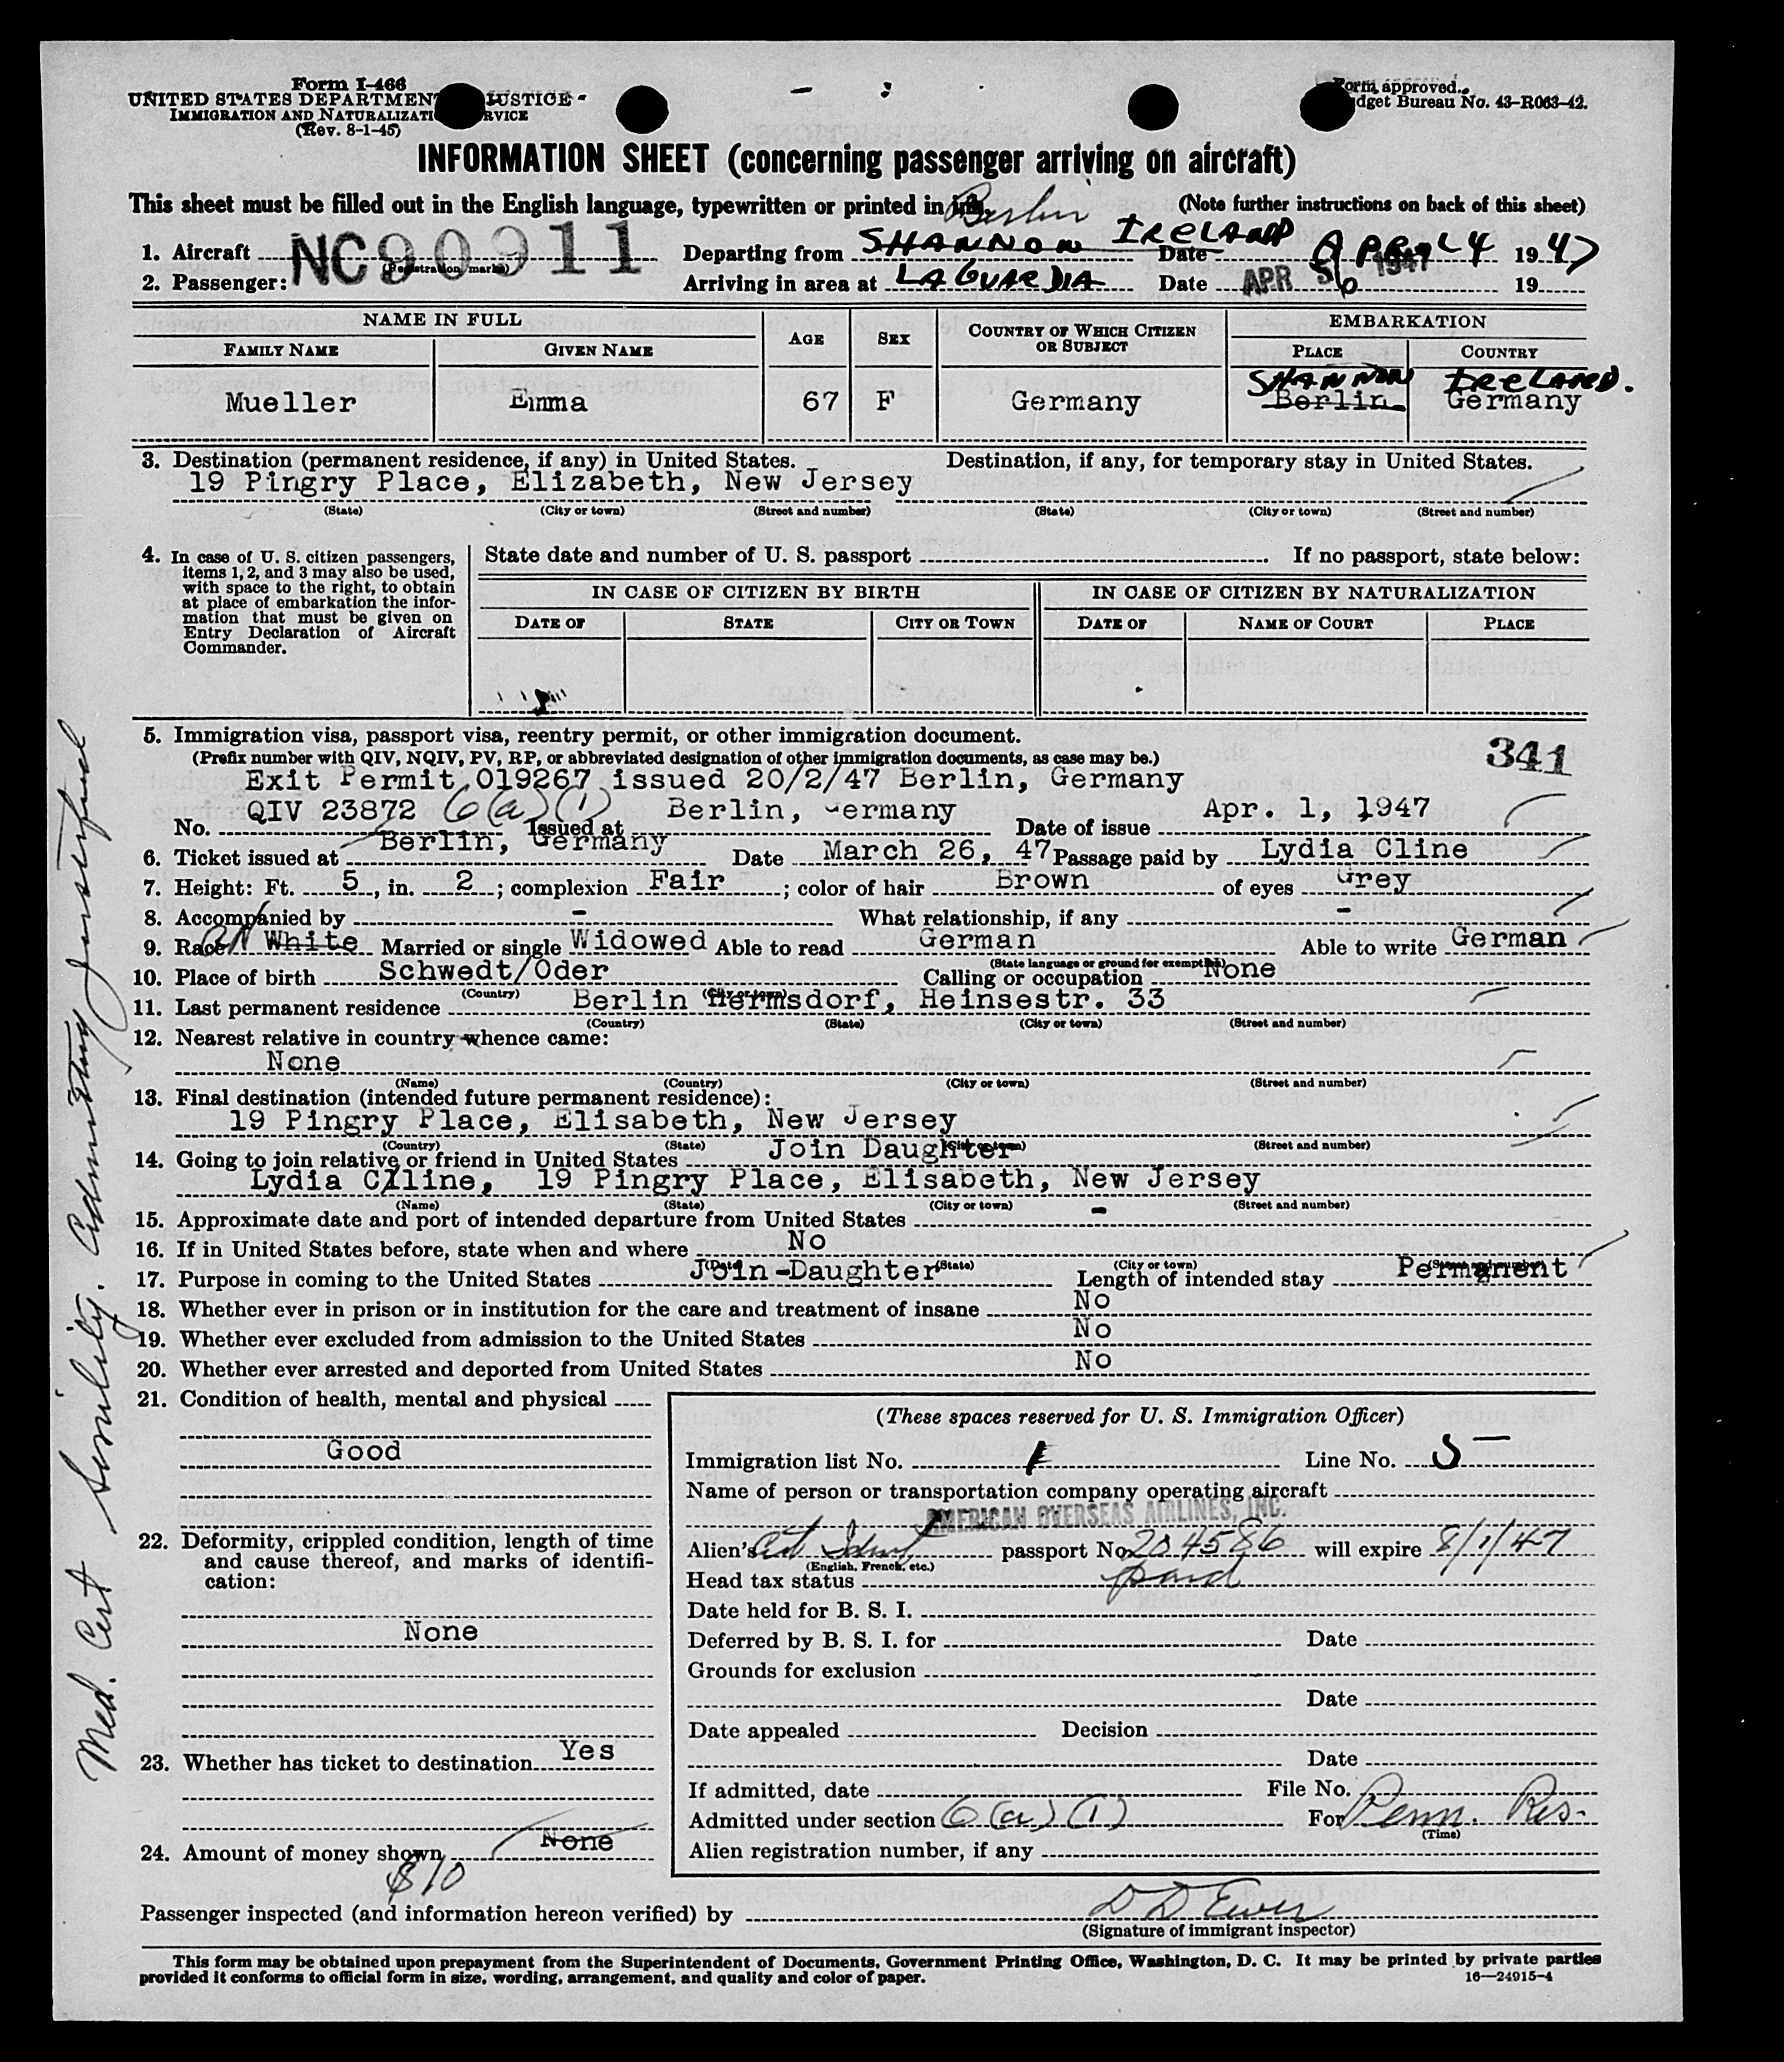 Form I-466
UNITED STATES DEPARTMENT JUSTICE
IMMIGRATION AND NATURALIZATI RVICE
(Rev. 8-1-45)
Form approved.
dget Bureau No. 43-R063-42.
INFORMATION SHEET (concerning passenger arriving on aircraft)
This sheet must be filled out in the English language, typewritten or printed in ink. Berlin (Note further instructions on back of this sheet)
1. Aircraft NC90911 Departing from SHANNON IRELAND Date APR 4 1947
(Registration marks)
2. Passenger: Arriving in area at LAGUARDIA Date APR 5 1947 19
NAME IN FULL AGE SEX COUNTRY OF WHICH CITIZEN OR SUBJECT EMBARKATION
FAMILY NAME GIVEN NAME PLACE COUNTRY
SHANNON IRELAND.
Mueller Emma 67 F Germany Berlin Germany
3. Destination (permanent residence, if any) in United States. Destination, if any, for temporary stay in United States.
19 Pingry Place, Elizabeth, New Jersey
(State) (City or town) (Street and number) (State) (City or town) (Street and number)
4. In case of U. S. citizen passengers, items 1, 2, and 3 may also be used, with space to the right, to obtain at place of embarkation the information that must be given on Entry Declaration of Aircraft Commander.
State date and number of U. S. passport . If no passport, state below:
IN CASE OF CITIZEN BY BIRTH IN CASE OF CITIZEN BY NATURALIZATION
DATE OF STATE CITY OR TOWN DATE OF NAME OF COURT PLACE
5. Immigration visa, passport visa, reentry permit, or other immigration document.
(Prefix number with QIV, NQIV, PV, RP, or abbreviated designation of other immigration documents, as case may be.) 341
Exit Permit 019267 issued 20/2/47 Berlin, Germany
No. QIV 23872 6(a)(1) Issued at Berlin, Germany Date of issue Apr. 1, 1947
6. Ticket issued at Berlin, Germany Date March 26, 47 Passage paid by Lydia Cline
7. Height: Ft. 5, in. 2; complexion Fair; color of hair Brown of eyes Grey
8. Accompanied by - What relationship, if any -
9. Race White Married or single Widowed Able to read German Able to write German
(State language or ground for exemption)
10. Place of birth Schwedt/Oder Calling or occupation None
(Country) (City or town)
11. Last permanent residence Berlin Hermsdorf, Heinsestr. 33
(Country) (State) (City or town) (Street and number)
12. Nearest relative in country whence came:
None
(Name) (Country) (City or town) (Street and number)
13. Final destination (intended future permanent residence):
19 Pingry Place, Elisabeth, New Jersey
(Country) (State) (City or town) (Street and number)
14. Going to join relative or friend in United States Join Daughter
Lydia Cline, 19 Pingry Place, Elisabeth, New Jersey
(Name) (State) (City or town) (Street and number)
15. Approximate date and port of intended departure from United States -
16. If in United States before, state when and where No
(Date) (State) (City or town) (Street and number)
17. Purpose in coming to the United States Join-Daughter Length of intended stay Permanent
18. Whether ever in prison or in institution for the care and treatment of insane No
19. Whether ever excluded from admission to the United States No
20. Whether ever arrested and deported from United States No
21. Condition of health, mental and physical
Good
22. Deformity, crippled condition, length of time and cause thereof, and marks of identification:
None
23. Whether has ticket to destination Yes
24. Amount of money shown None
$10
(These spaces reserved for U. S. Immigration Officer)
Immigration list No. 1 Line No. 5
Name of person or transportation company operating aircraft
AMERICAN OVERSEAS AIRLINES, INC.
Alien's passport No. 204586 will expire 8/1/47
(English, French, etc.)
Head tax status paid
Date held for B. S. I.
Deferred by B. S. I. for Date
Grounds for exclusion
Date
Date appealed Decision
Date
If admitted, date File No.
Admitted under section 6(a)(1) For Perm. Res.
(Time)
Alien registration number, if any
Passenger inspected (and information hereon verified) by D D Ewer
(Signature of immigrant inspector)
This form may be obtained upon prepayment from the Superintendent of Documents, Government Printing Office, Washington, D. C. It may be printed by private parties
provided it conforms to official form in size, wording, arrangement, and quality and color of paper. 16—24915-4
Med. Cert Senility.